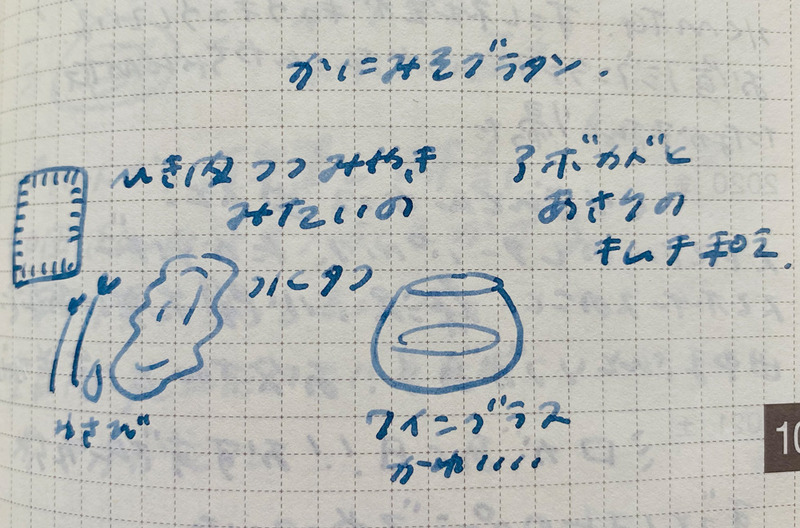 かにみそグラタン.
ひき肉つつみやき
みたいの
アボカドと
あさりの
キムチ和え.
水タコ
わさび
ワイングラス
かわいい
10